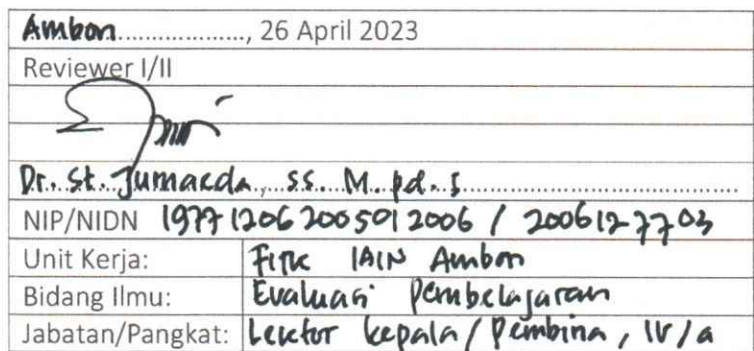 Ambon..................., 26 April 2023
Reviewer I/II
Dr. St. Jumaeda, SS. M. Pd. I
NIP/NIDN 197712062005012006 / 2006127703
Unit Kerja: FITK IAIN Ambon
Bidang Ilmu: Evaluasi Pembelajaran
Jabatan/Pangkat: Lektor Kepala / Pembina, IV/a